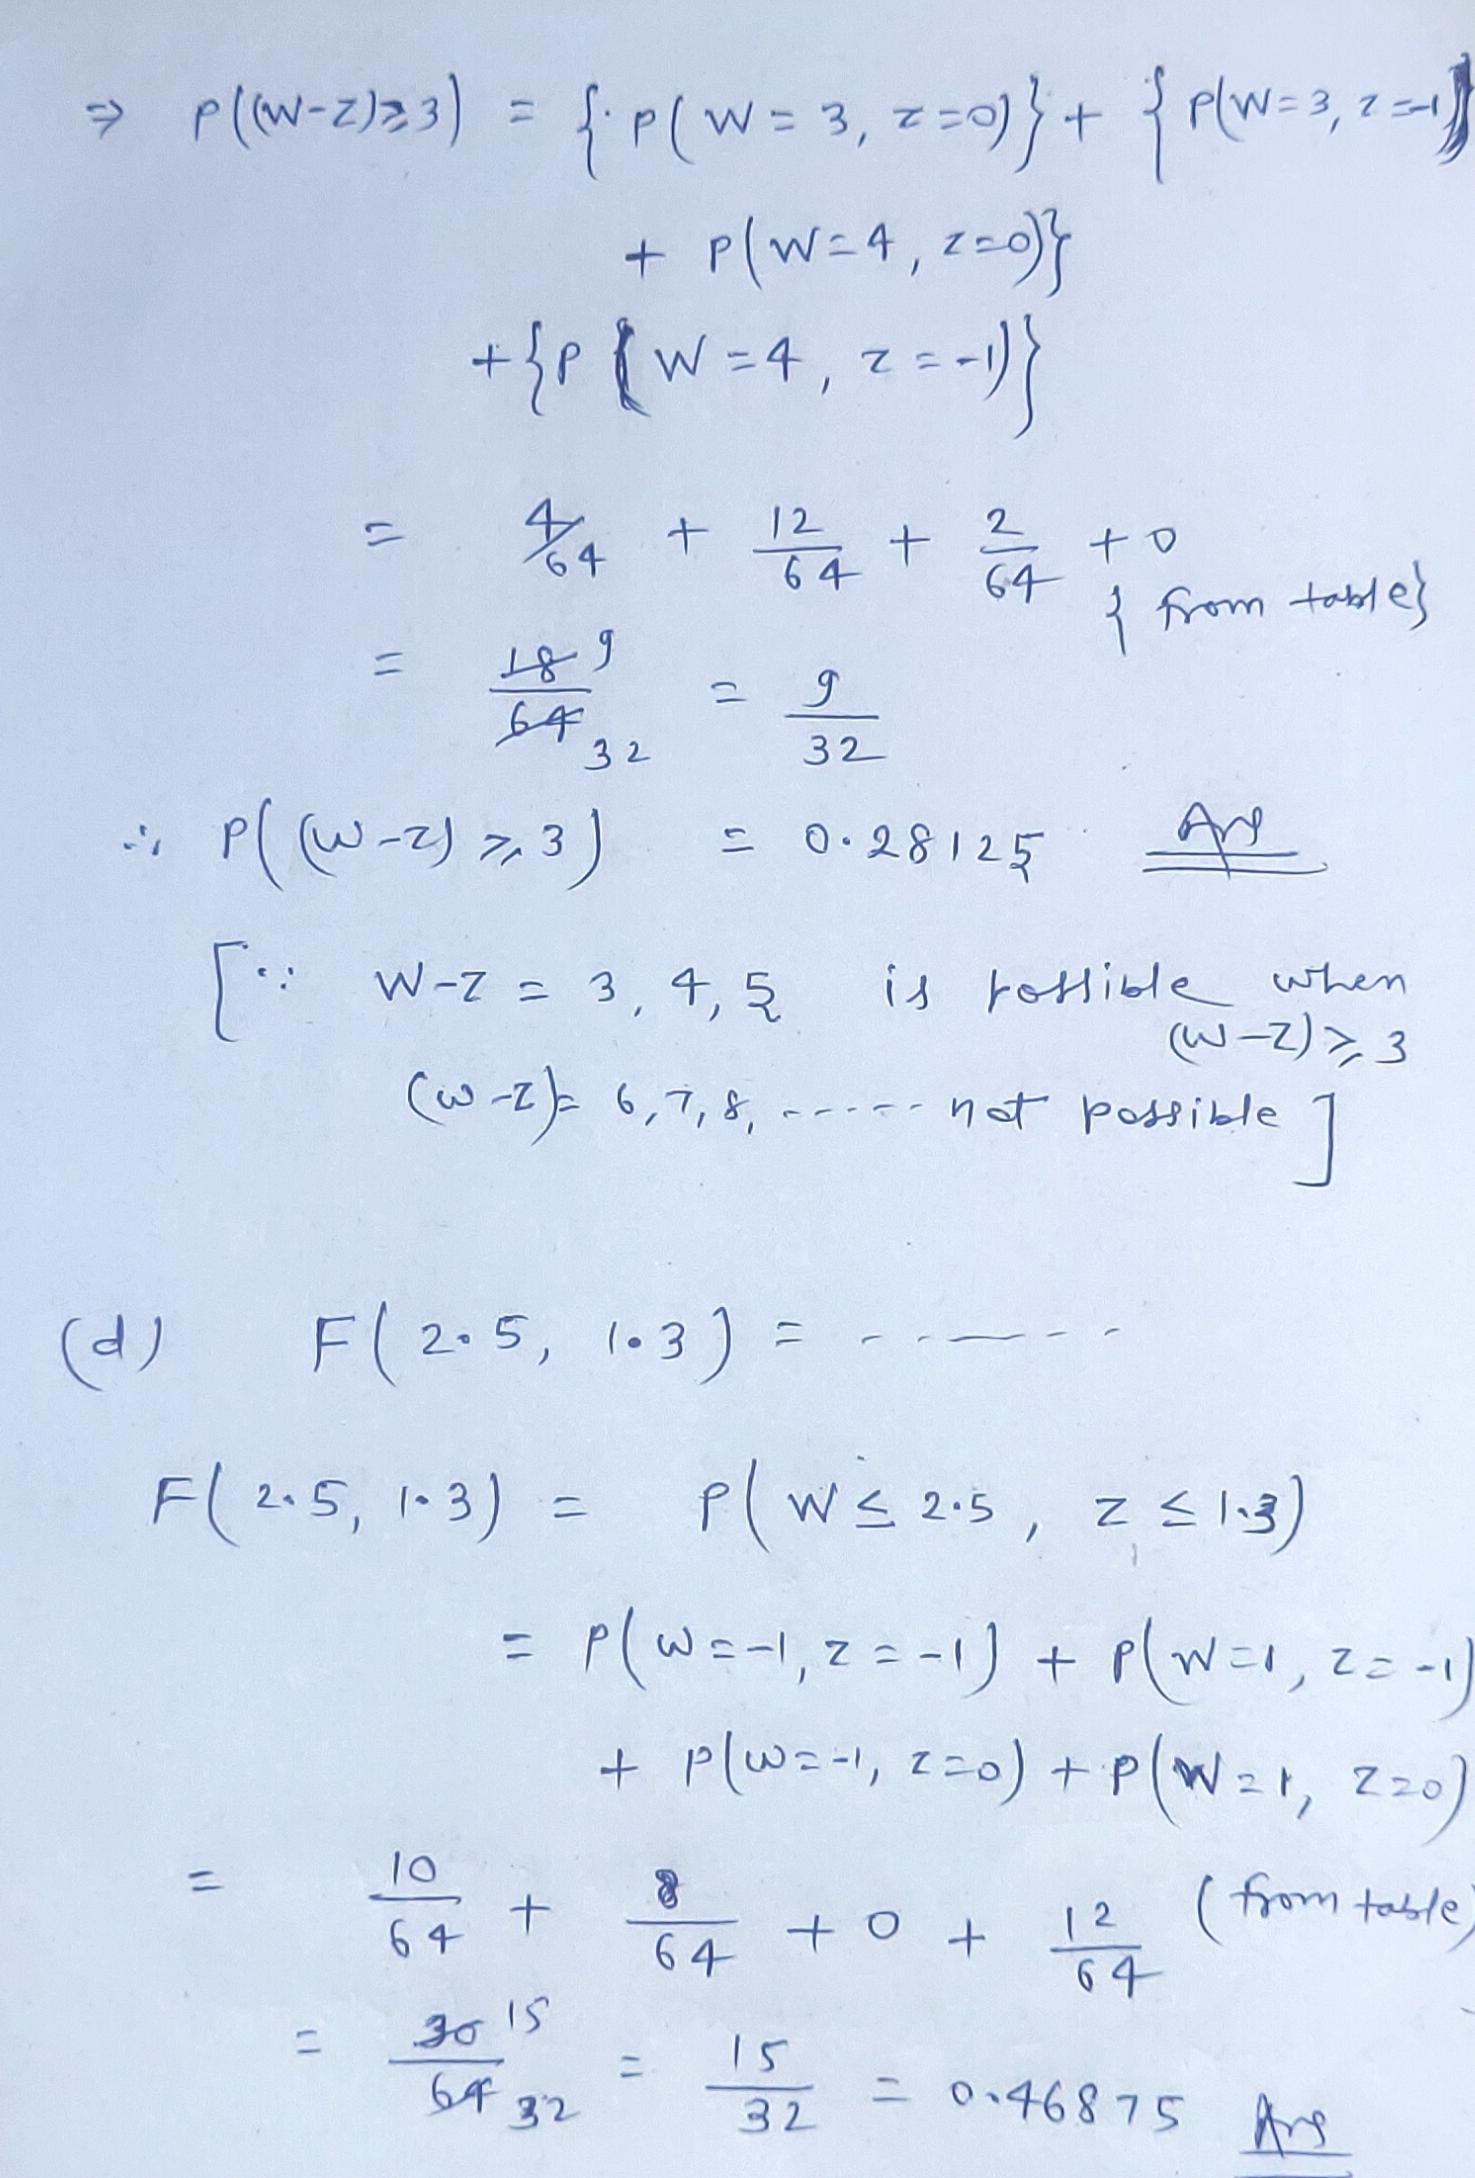 ⇒ P((W-Z)≥3) = {P(W=3, Z=0)} + {P(W=3, Z=-1)
+ P(W=4, Z=0)}
+{P(W=4, Z=-1)}
= 4/64 + 12/64 + 2/64 + 0
{from table}
= 18/64 9 32 = 9/32
∴ P((W-Z) ≥ 3) = 0.28125 Ans
[∵ W-Z = 3, 4, 5 is possible when
(W-Z) ≥ 3
(W-Z)= 6,7,8, ----- not possible]
(d) F(2.5, 1.3) = ------
F(2.5, 1.3) = P(W ≤ 2.5, Z ≤ 1.3)
= P(W=-1, Z=-1) + P(W=1, Z=-1)
+ P(W=-1, Z=0) + P(W=1, Z=0)
= 10/64 + 8/64 + 0 + 12/64 (from table)
= 30/64 15 32 = 15/32 = 0.46875 Ans